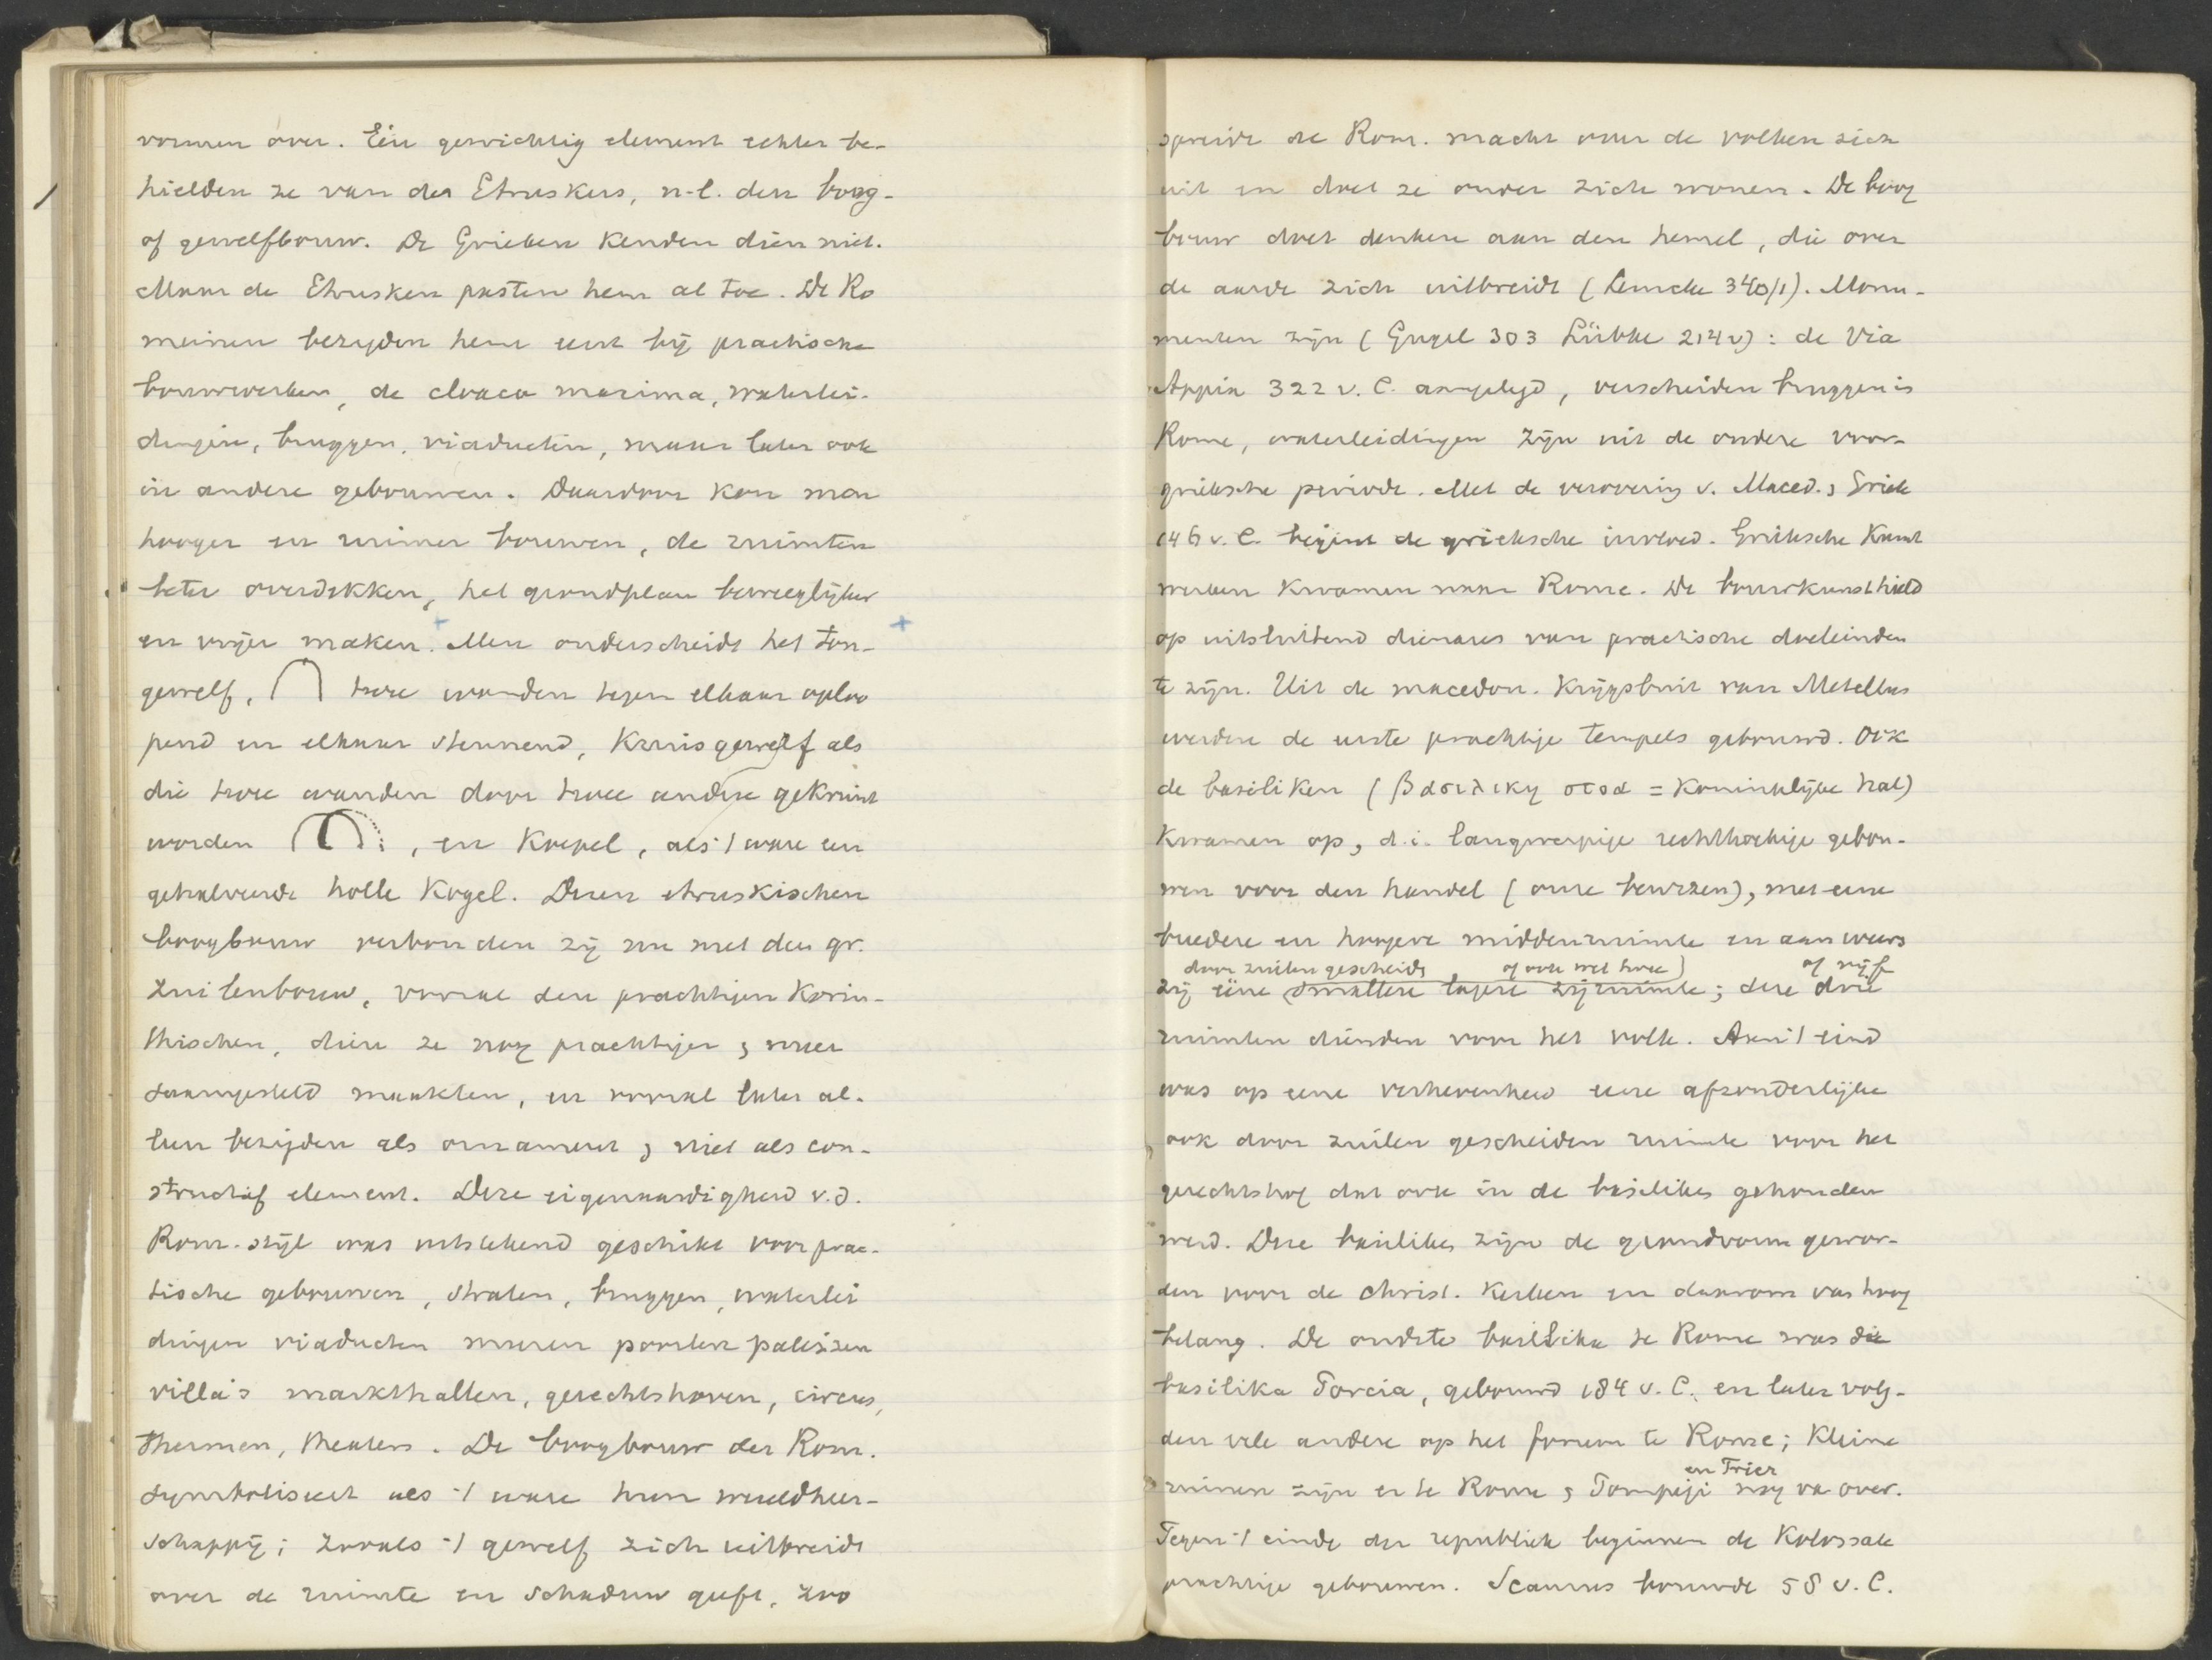 vormen over. Een gewichtig element echter be-
hielden ze van den Etruskers, n.l. den boog-
of gewelfbouw. De Grieken kenden dien niet.
Maar de Etrusken pasten hem al toe. De Ro
meinen bezigden hem eerst bij practische
bouwwerken, de cloaca maxima, waterlei-
dingen, bruggen, viaducten, maar later ook
in andere gebouwen. Daardoor kon men
hooger en ruimer bouwen, de ruimten
beter overdekken, het grondplan beweeglijker
en vrijer maken. Men onderscheidt het ton-
gewelf, twee wanden tegen elkaar oploo
pend en elkaar steunend, Kruisgewelf als
die twee wanden door twee andere gekruist
worden , en Koepel, als 't ware een
gehalveerde holle Kogel. Dezen etruskischen
boogbouw verbonden zij nu met den gr.
zuilenbouw, vooral den prachtigen Korin-
thischen, dien ze nog prachtiger & meer
saamgesteld maakten, en vooral later al-
leen bezigden als ornament & niet als con-
structief element. Deze eigenaardigheid v.d.
Rom. stijl was uitstekend geschikt voor prac-
tische gebouwen, straten, bruggen, waterlei
dingen viaducten muren poorten paleizen
villa's markthallen, gerechtshoven, circus,
Thermen, theaters. De boogbouw der Rom.
symboliseert als 't ware hun wereldheer-
schappij; zooals 't gewelf zich uitbreidt
over de ruimte en schaduw geeft, zoo
spreidt de Rom. macht over de volken zich
uit en doet ze onder zich wonen. De boog
bouw doet denken aan den hemel, die over
de aarde zich uitbreidt (Lemcke 340/1). Monu-
menten zijn (Gugel 303 Lübke 214v): de Via
Appia 322 v. C. aangelegd, verscheiden bruggen in
Rome, waterleidingen zijn uit de oudere voor-
grieksche periode. Met de verovering v. Maced. & Griek
146 v. C. begint de grieksche invloed. Grieksche Kunst
werken kwamen naar Rome. De bouwkunst hield
op uitsluitend dienares van practische doeleinden
te zijn. Uit de macedon. Krijgsbuit van Metellus
werden de eerste prachtige tempels gebouwd. Ook
de basiliken (βασιλικη στοα = Koninklijke hal)
Kwamen op, d.i. langwerpige rechthoekige gebou-
wen voor den handel (onze beurzen), met eene
breedere en hoogere middenruimte en aan weers
door zuilen gescheide , of ook wel twee) of vijf
zij eene smallere lagere zijruimte; deze drie
ruimten dienden voor het volk. Aan 't eind
was op eene verhevenheid eene afzonderlijke
ook door zuilen gescheiden ruimte voor het
gerechtshof dat ook in de basiliken gehouden
werd. Deze basilikes zijn de grondvorm gewor-
den voor de christ. Kerken en daarom van hoog
belang. De oudste basilika te Rome was die
basilika Porcia, gebouwd 184 v. C. en later volg-
den vele andere op het forum te Rome; Kleine
en Trier
ruinen zijn er te Rome & Pompeji nog van over.
Tegen 't einde der republiek beginnen de Kolossale
prachtige gebouwen. Scaurus bouwde 58 v. C.